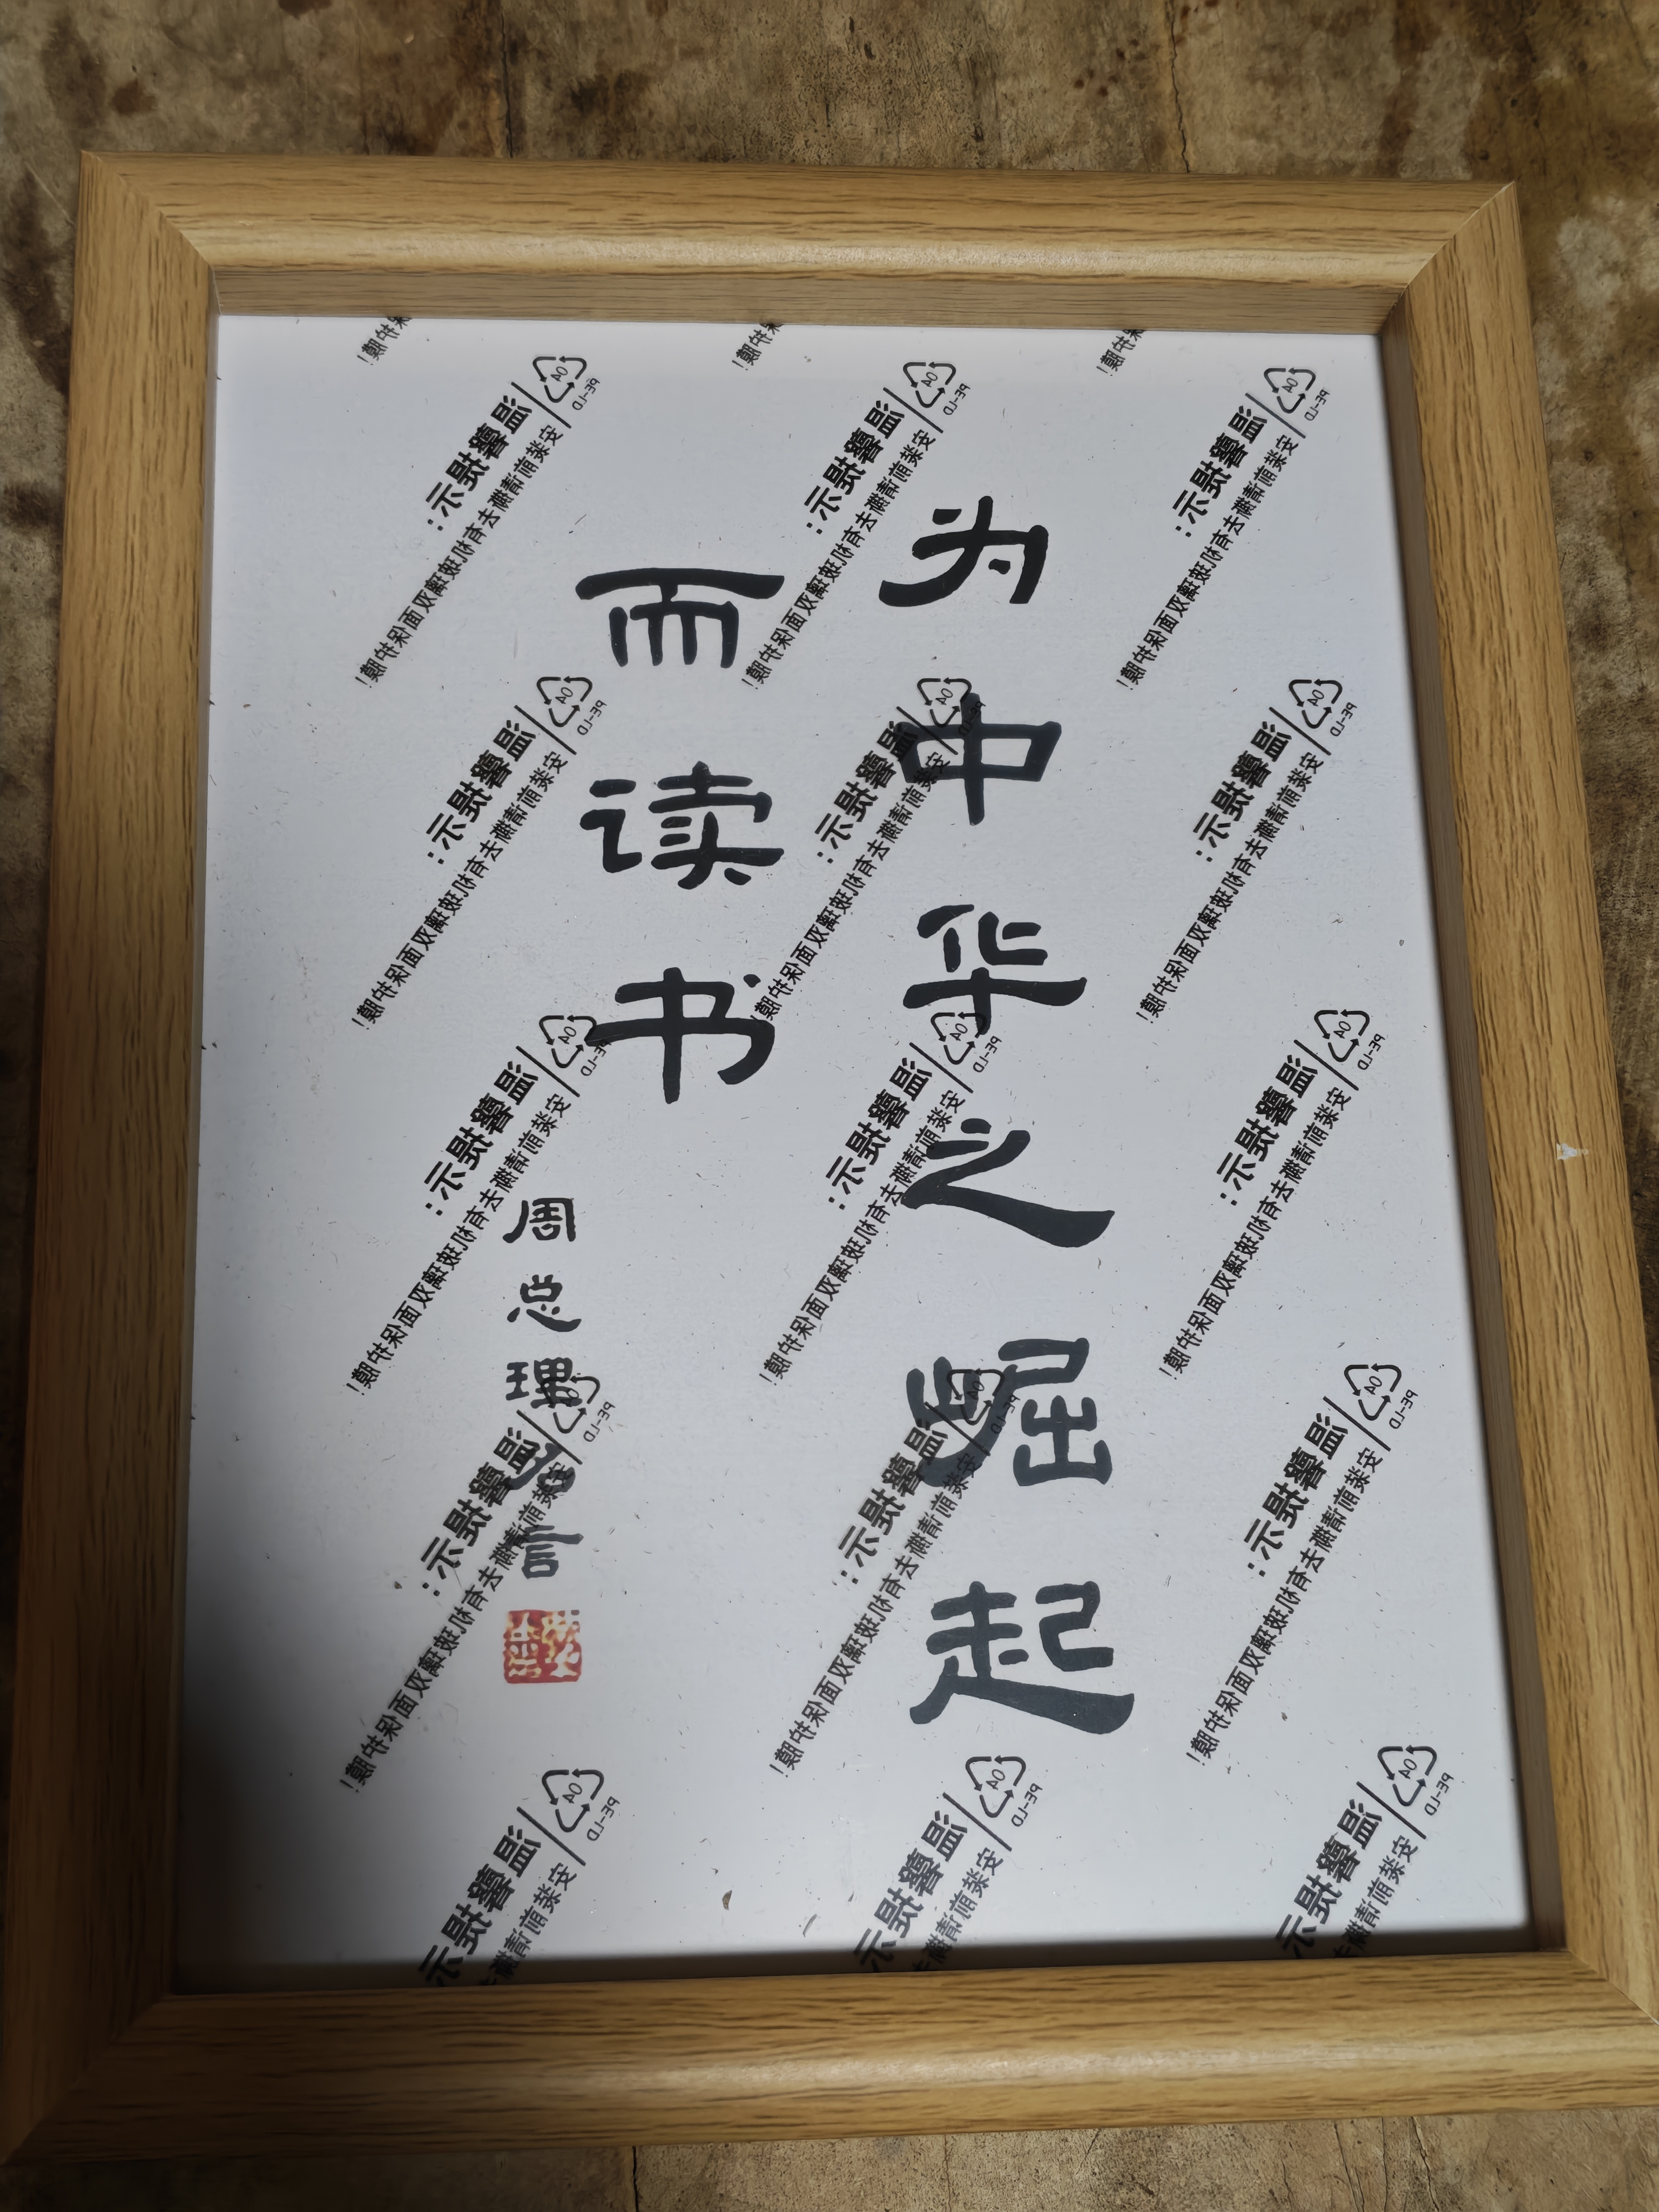 为中华之崛起
而读书
周总理名言
温馨提示:
安装前请撕去有机玻璃双面保护膜!
04
PE-LD